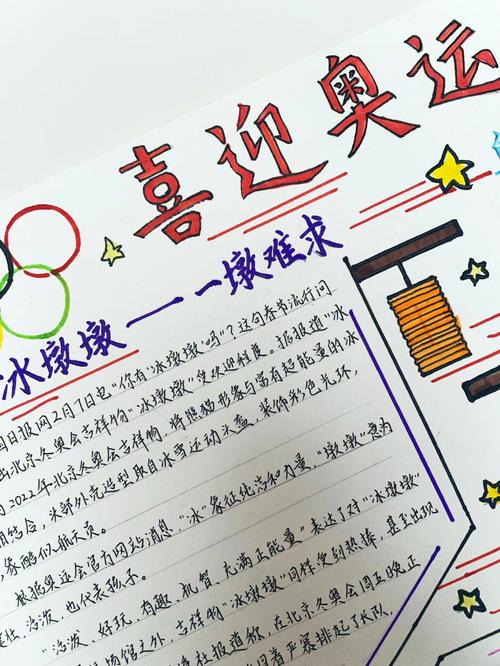 喜迎奥运
冰墩墩——一墩难求
国日报网2月7日电"你有"冰墩墩"吗"?这句春节流行问
出北京冬奥会吉祥物"冰墩墩"受欢迎程度。据报道"冰
为2022年北京冬奥会吉祥物,将熊猫形象与富有超能量的冰
相结合,头部外壳造型取自冰雪运动头盔,装饰彩色光环,
,酷似航天员。
根据奥运会官方网站消息,"冰"象征纯洁和力量,"墩墩"意为
、活泼,也代表孩子。
"活泼、好玩、有趣、机智、充满正能量"表达了对"冰墩墩"
场馆之外,吉祥物"冰墩墩"同样受到热捧,甚至出现
社报道称,在北京冬奥会周五晚正
着严寒排起了长队,